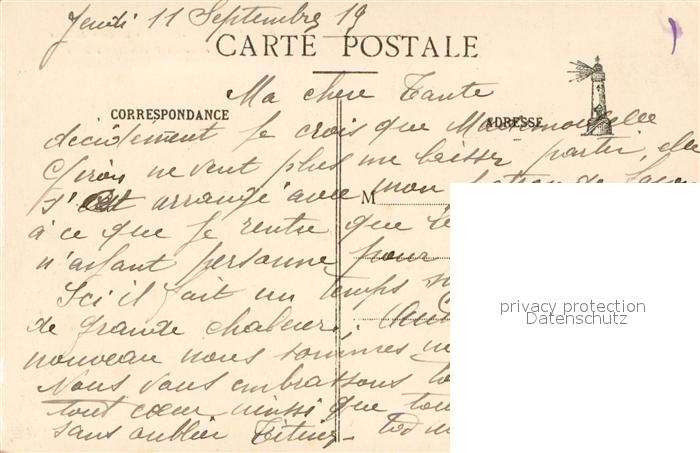 Jeudi 11 Septembre 19
CARTE POSTALE
Ma chere Tante
CORRESPONDANCE
ADRESSE
décidement je crois que Mademoiselle
ne veut plus me laisser partir, elle
s'est arrangé avec mon patron de façon
M
à ce que je rentre que le
n'ayant personne pour
Ici il fait un temps
de grande chaleur,
nouveau nous sommes
Nous vous embrassons
tout cœur ainsi que
sans oublier
privacy protection
Datenschutz